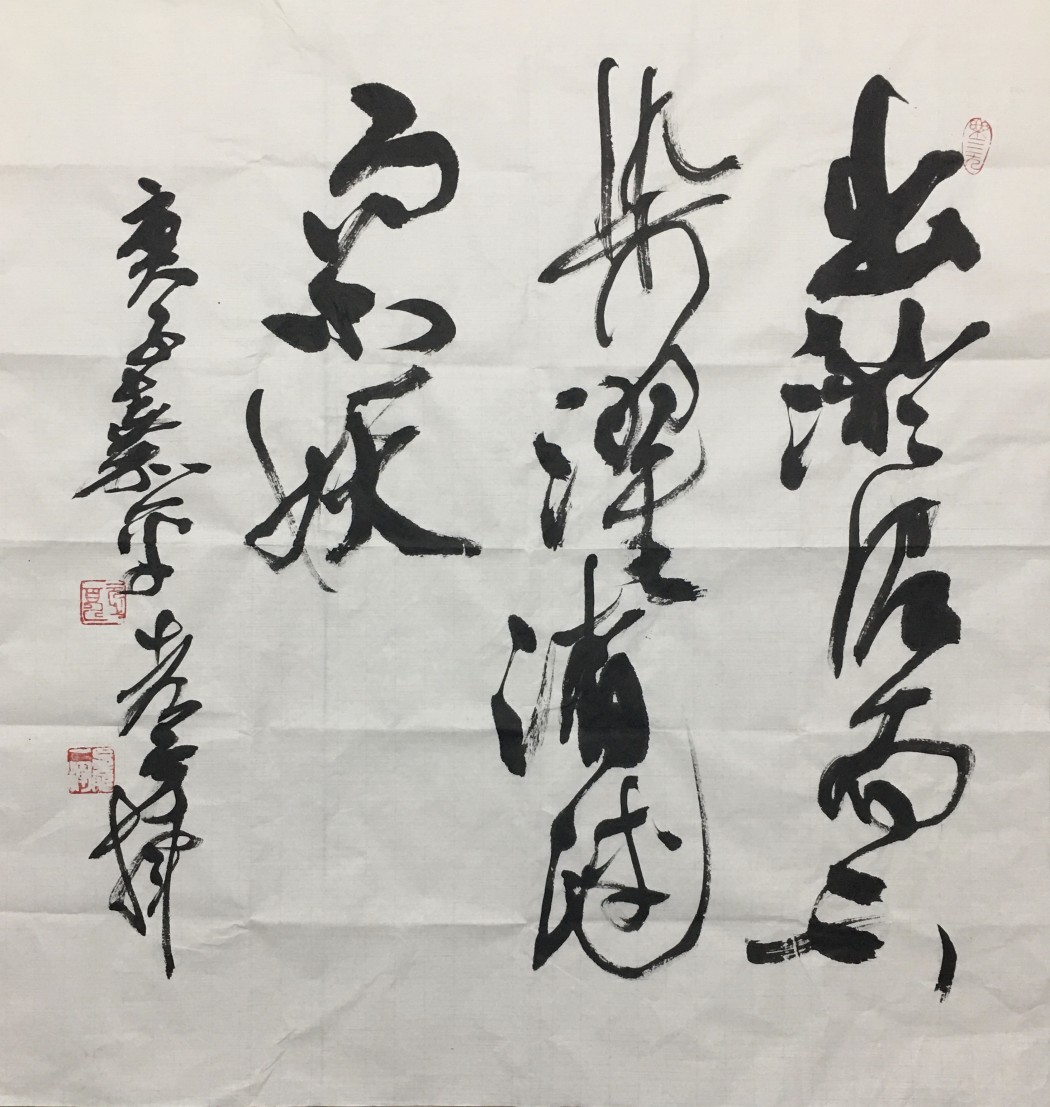 出淤泥而不
染濯清涟
而不妖
庚子嘉平